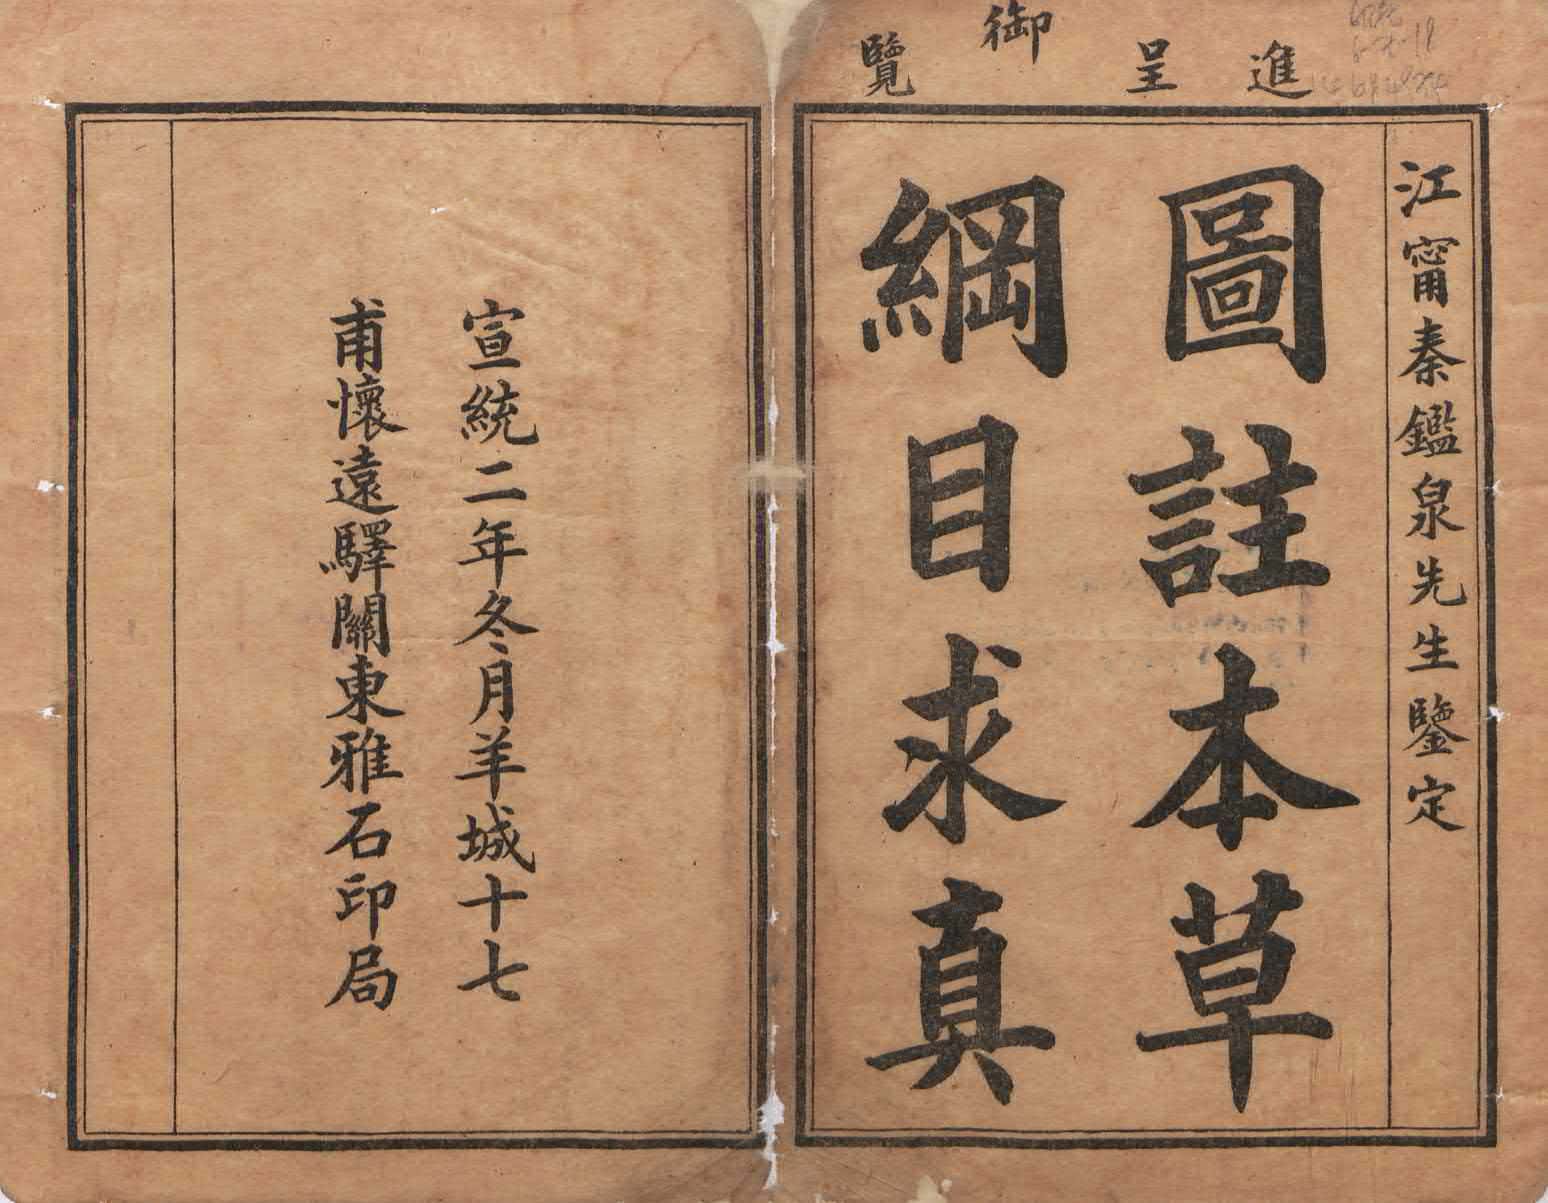 進呈御覽
江甯秦鑑泉先生鑒定
圖註本草
綱目求真
宣統二年冬月羊城十七
甫懷遠驛關東雅石印局